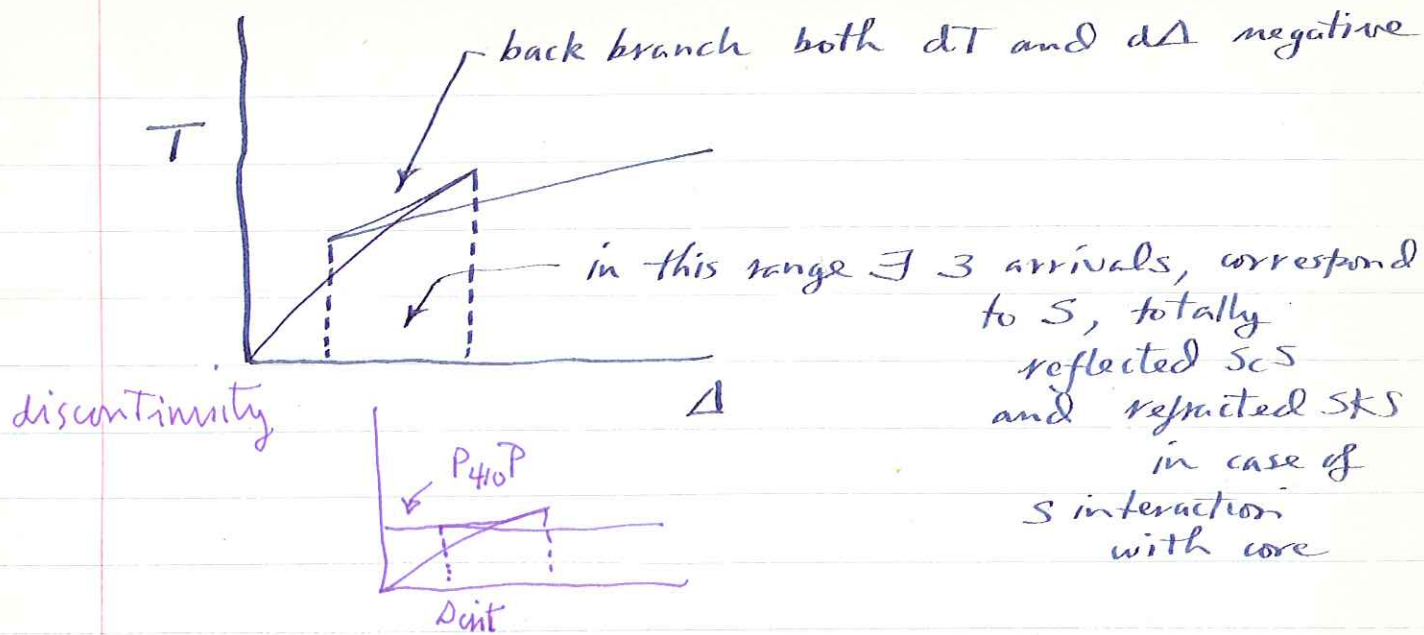 back branch both dT and dΔ negative
T
in this range ∃ 3 arrivals, correspond
to S, totally
reflected ScS
and refracted SKS
in case of
S interaction
with core
Δ
discontinuity
P₄₁₀P
Dcrit